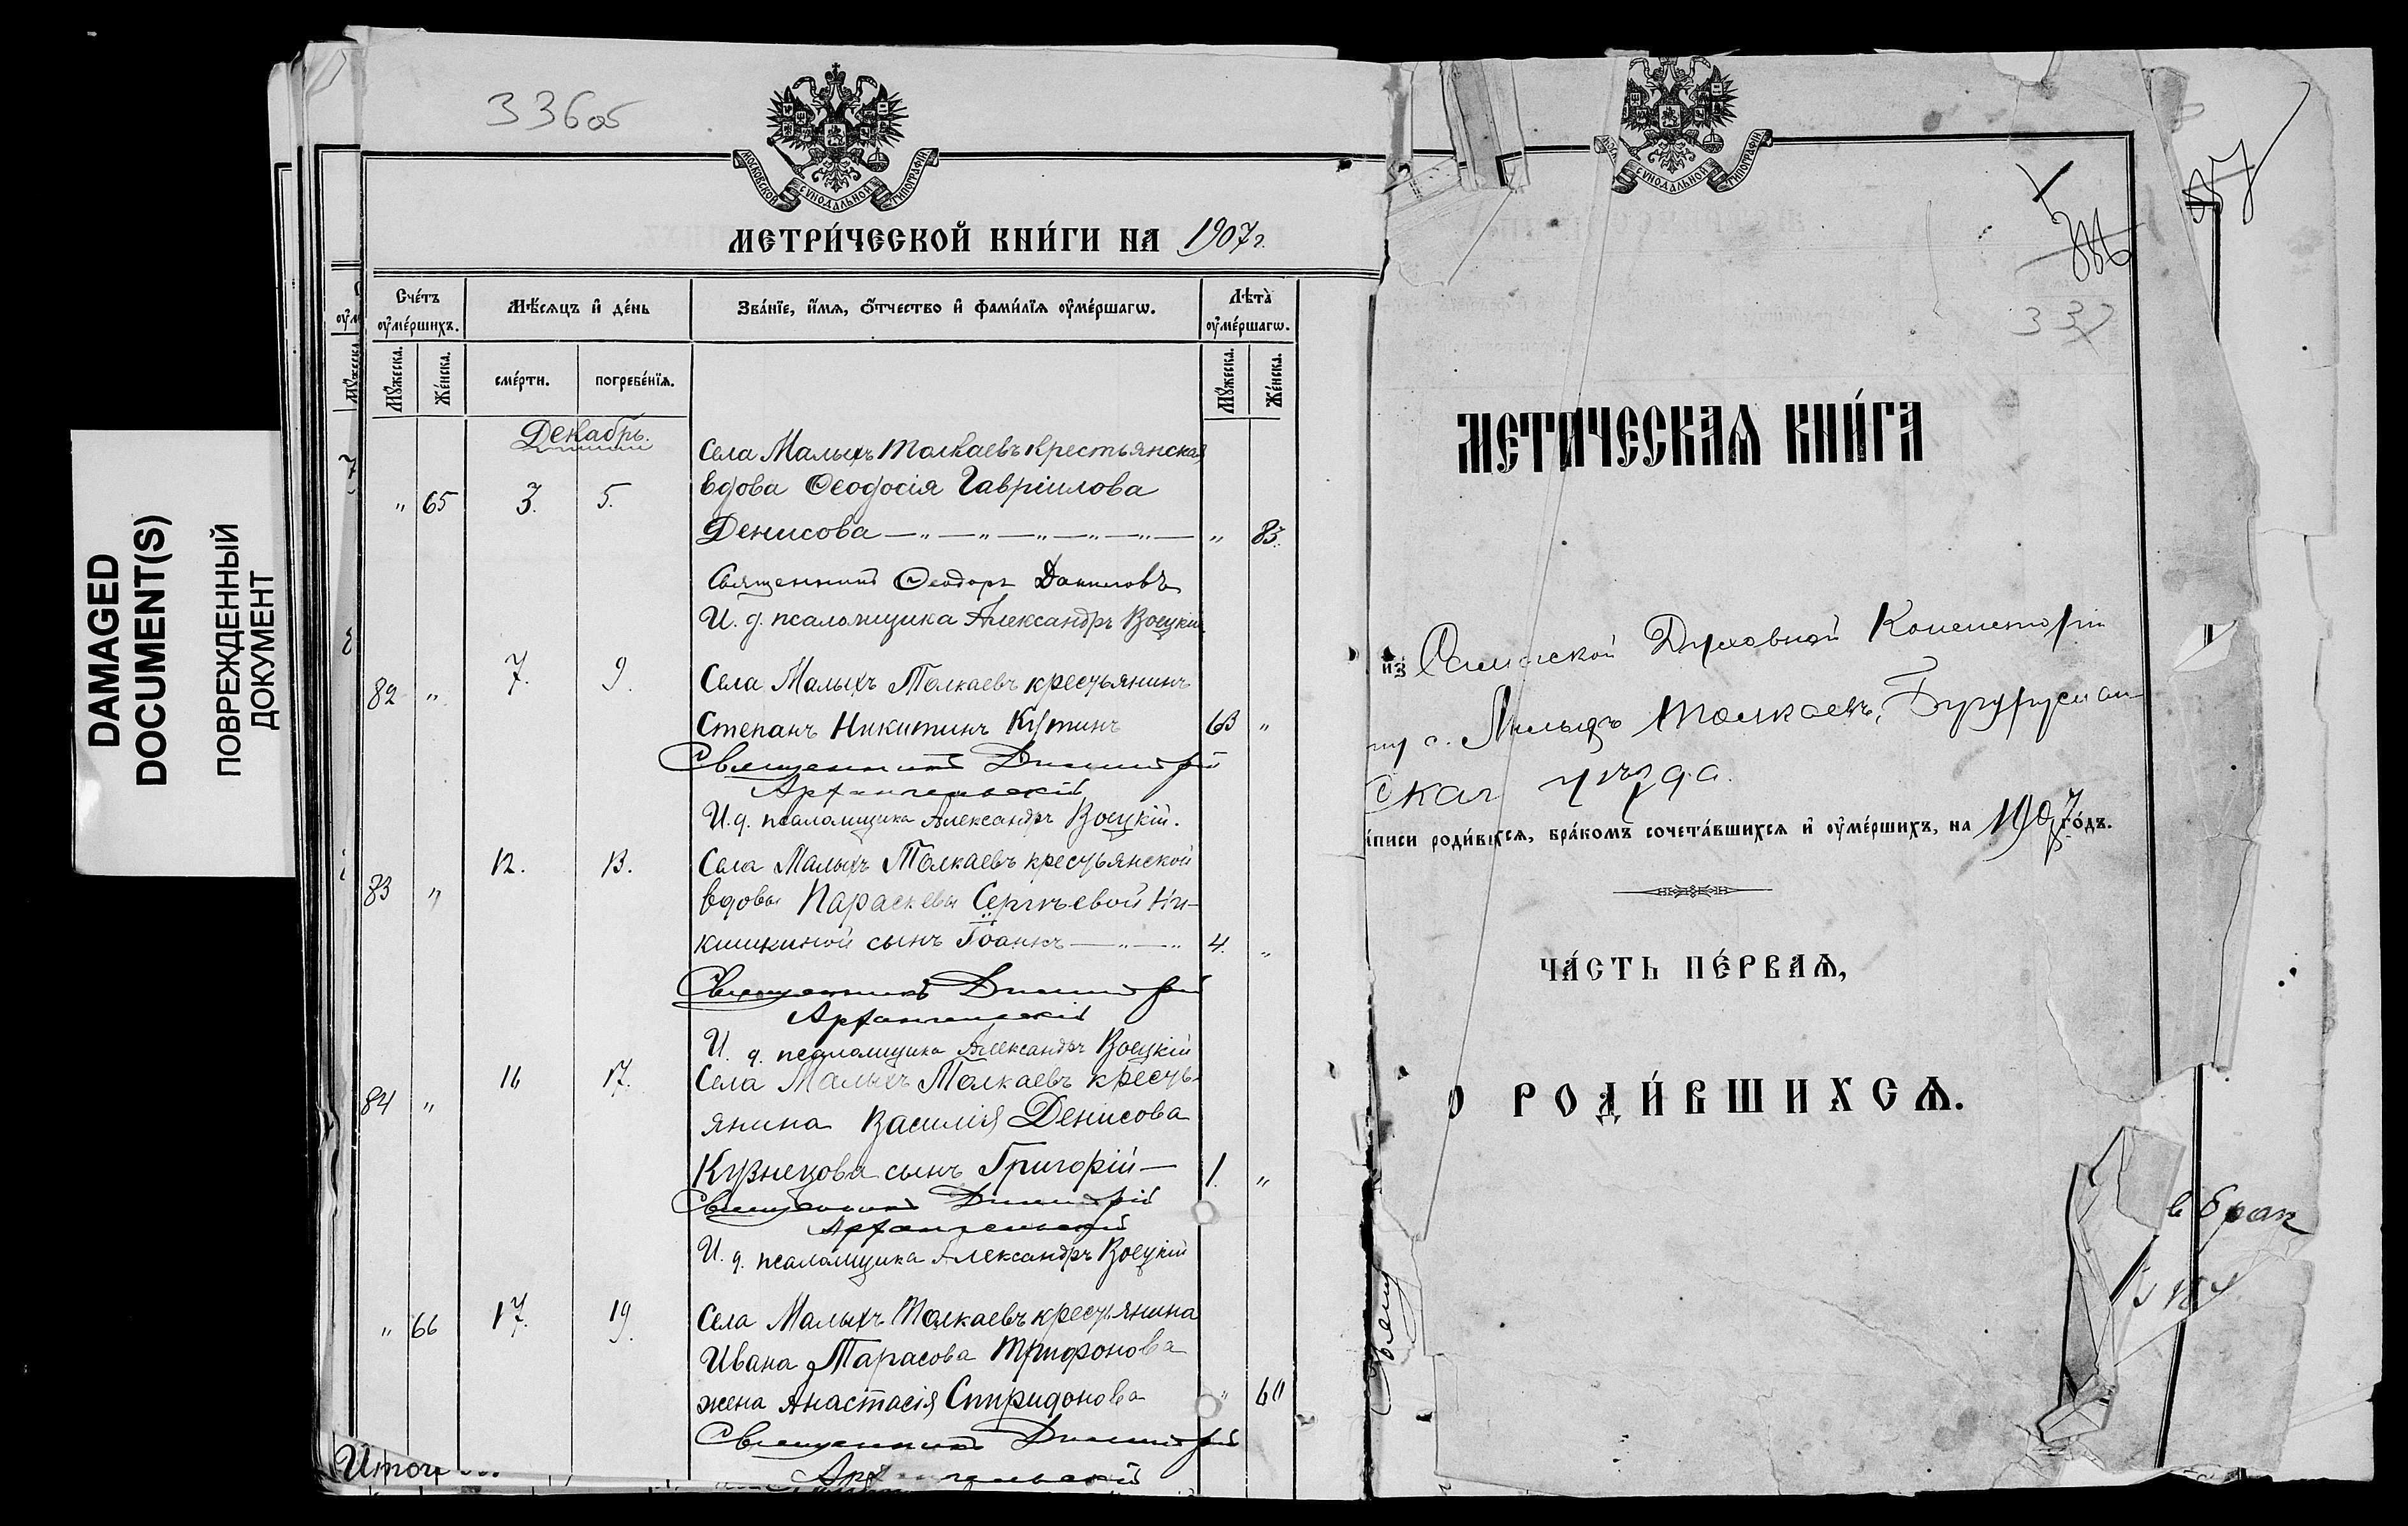 DAMAGED
DOCUMENT(S)
ПОВРЕЖДЕННЫЙ
ДОКУМЕНТ
336об
МОСКОВСКОЙ СѴНОДАЛЬНОЙ ТИПОГРАФІИ
МЕТРИ́ЧЕСКОЙ КНИ́ГИ НА 1907 г.
Сче́тъ ᲂу҆ме́ршихъ.
Мѣ́сяцъ и҆ де́нь
Зва́нїе, и҆́мѧ, ѻ҆́тчество и҆ фами́лїѧ ᲂу҆ме́ршагѡ.
Лѣта̀ ᲂу҆ме́ршагѡ.
Мꙋ́жеска.
Же́нска.
сме́рти.
погребе́нїѧ.
Мꙋ́жеска.
Же́нска.
Декабрь.
Села Малыхъ Толкаевъ крестьянская
" 65 3. 5. вдова Ѳеодосія Гавріилова
Денисова — " — " — " — " — " — " 83.
Священникъ Ѳеодоръ Даниловъ
И. д. псаломщика Александръ Воецкій
82 " 7. 9. Села Малыхъ Толкаевъ крестьянинъ
Степанъ Никитинъ Кутинъ 63 "
Священникъ Димитрій
Архангельскій
И. д. псаломщика Александръ Воецкій.
12. 13. Села Малыхъ Толкаевъ крестьянской
83 " вдовы Параскевы Сергѣевой Ни-
кишкиной сынъ Іоаннъ — " — " 4. "
Священникъ Димитрій
Архангельскій
И. д. псаломщика Александръ Воецкій
16 17. Села Малыхъ Толкаевъ кресть-
84 " янина Василія Денисова
Кузнецова сынъ Григорій — 1. "
Священникъ Димитрій
Архангельскій
И. д. псаломщика Александръ Воецкій
" 66 17. 19. Села Малыхъ Толкаевъ крестьянина
Ивана Тарасова Трифонова
жена Анастасія Спиридонова " 60
Священникъ Димитрій
Архангельскій
Итого
СѴНОДАЛЬНОЙ ТИПОГРАФІИ
337
МЕТРИЧЕСКАѦ КНИ́ГА
из Самарской Духовной Консисторіи
с. Малыхъ Толкаевъ, Бугуруслан-
скаг уѣзда.
писи роди́вшихсѧ, бра́комъ сочета́вшихсѧ и҆ ᲂу҆ме́ршихъ, на 1907 го́дъ.
ЧА́СТЬ ПЕ́РВАѦ,
О РОДИ́ВШИХСѦ.
в брак